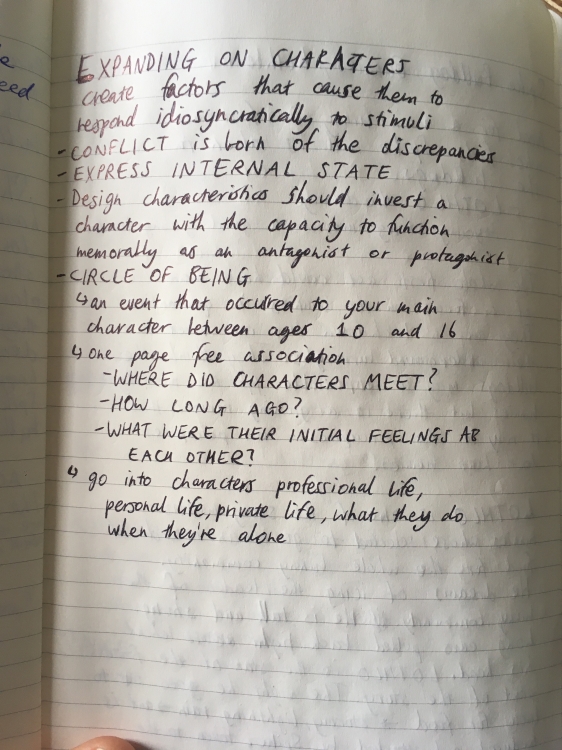 e
eed
EXPANDING ON CHARACTERS
create factors that cause them to
respond idiosyncratically to stimuli
- CONFLICT is born of the discrepancies
- EXPRESS INTERNAL STATE
- Design characteristics should invest a
character with the capacity to function
memorally as an antagonist or protagonist
- CIRCLE OF BEING
↳ an event that occured to your main
character between ages 10 and 16
↳ one page free association
- WHERE DID CHARACTERS MEET?
- HOW LONG AGO?
- WHAT WERE THEIR INITIAL FEELINGS AB
EACH OTHER?
↳ go into characters professional life,
personal life, private life, what they do
when they're alone